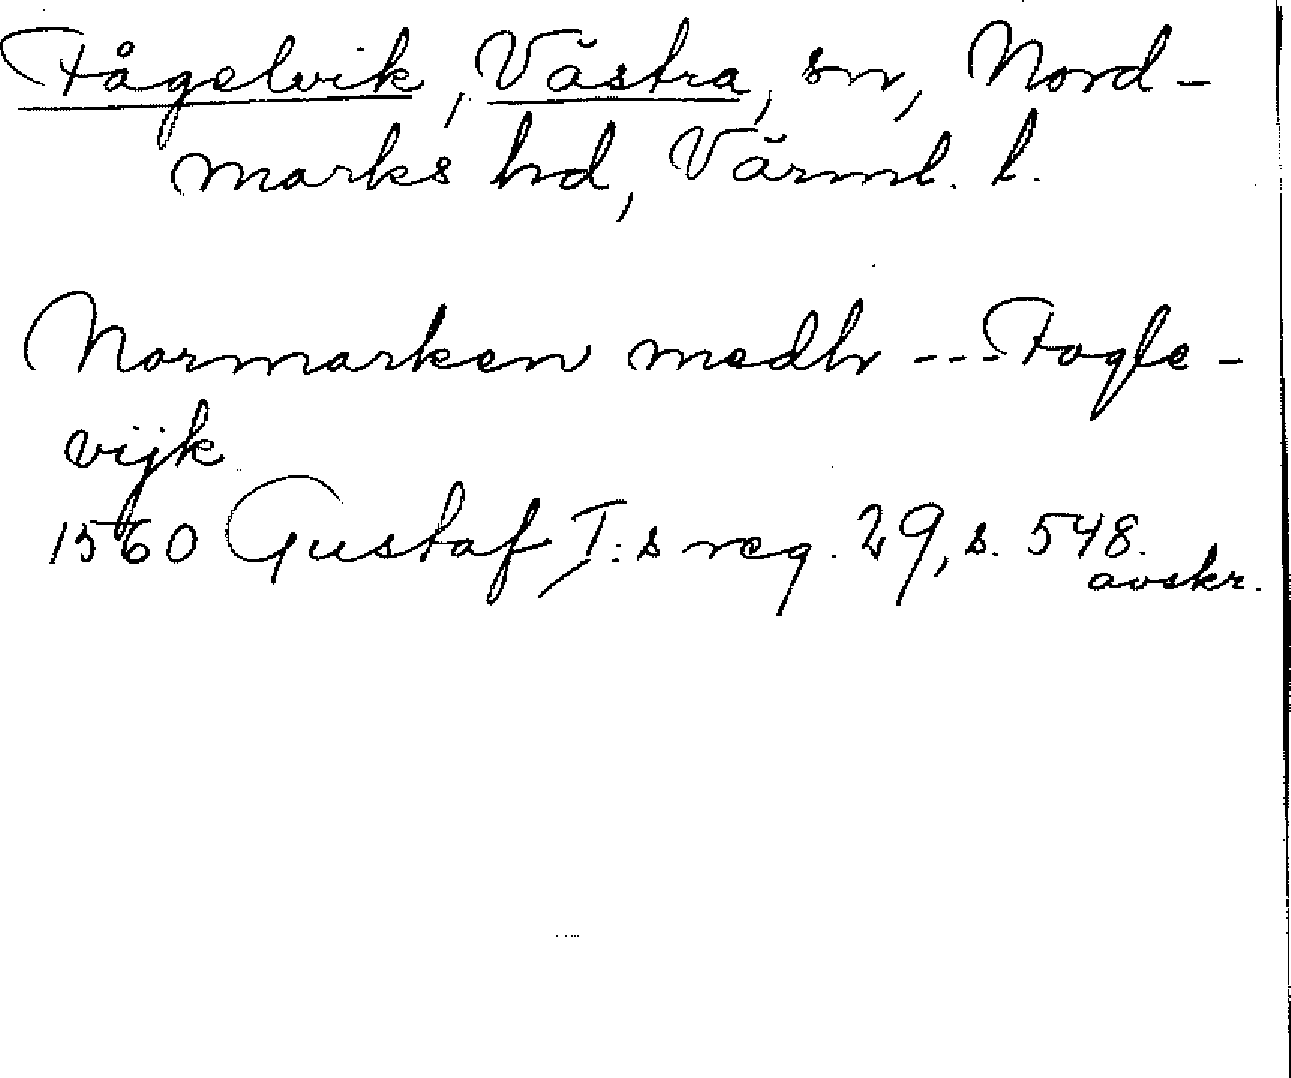 Fågelvik, Västra, sn, Nord-
marks hd, Värml. l.
Normarken medh --- Fogle-
vijk
1560 Gustaf I:s reg. 29, s. 548.
avskr.